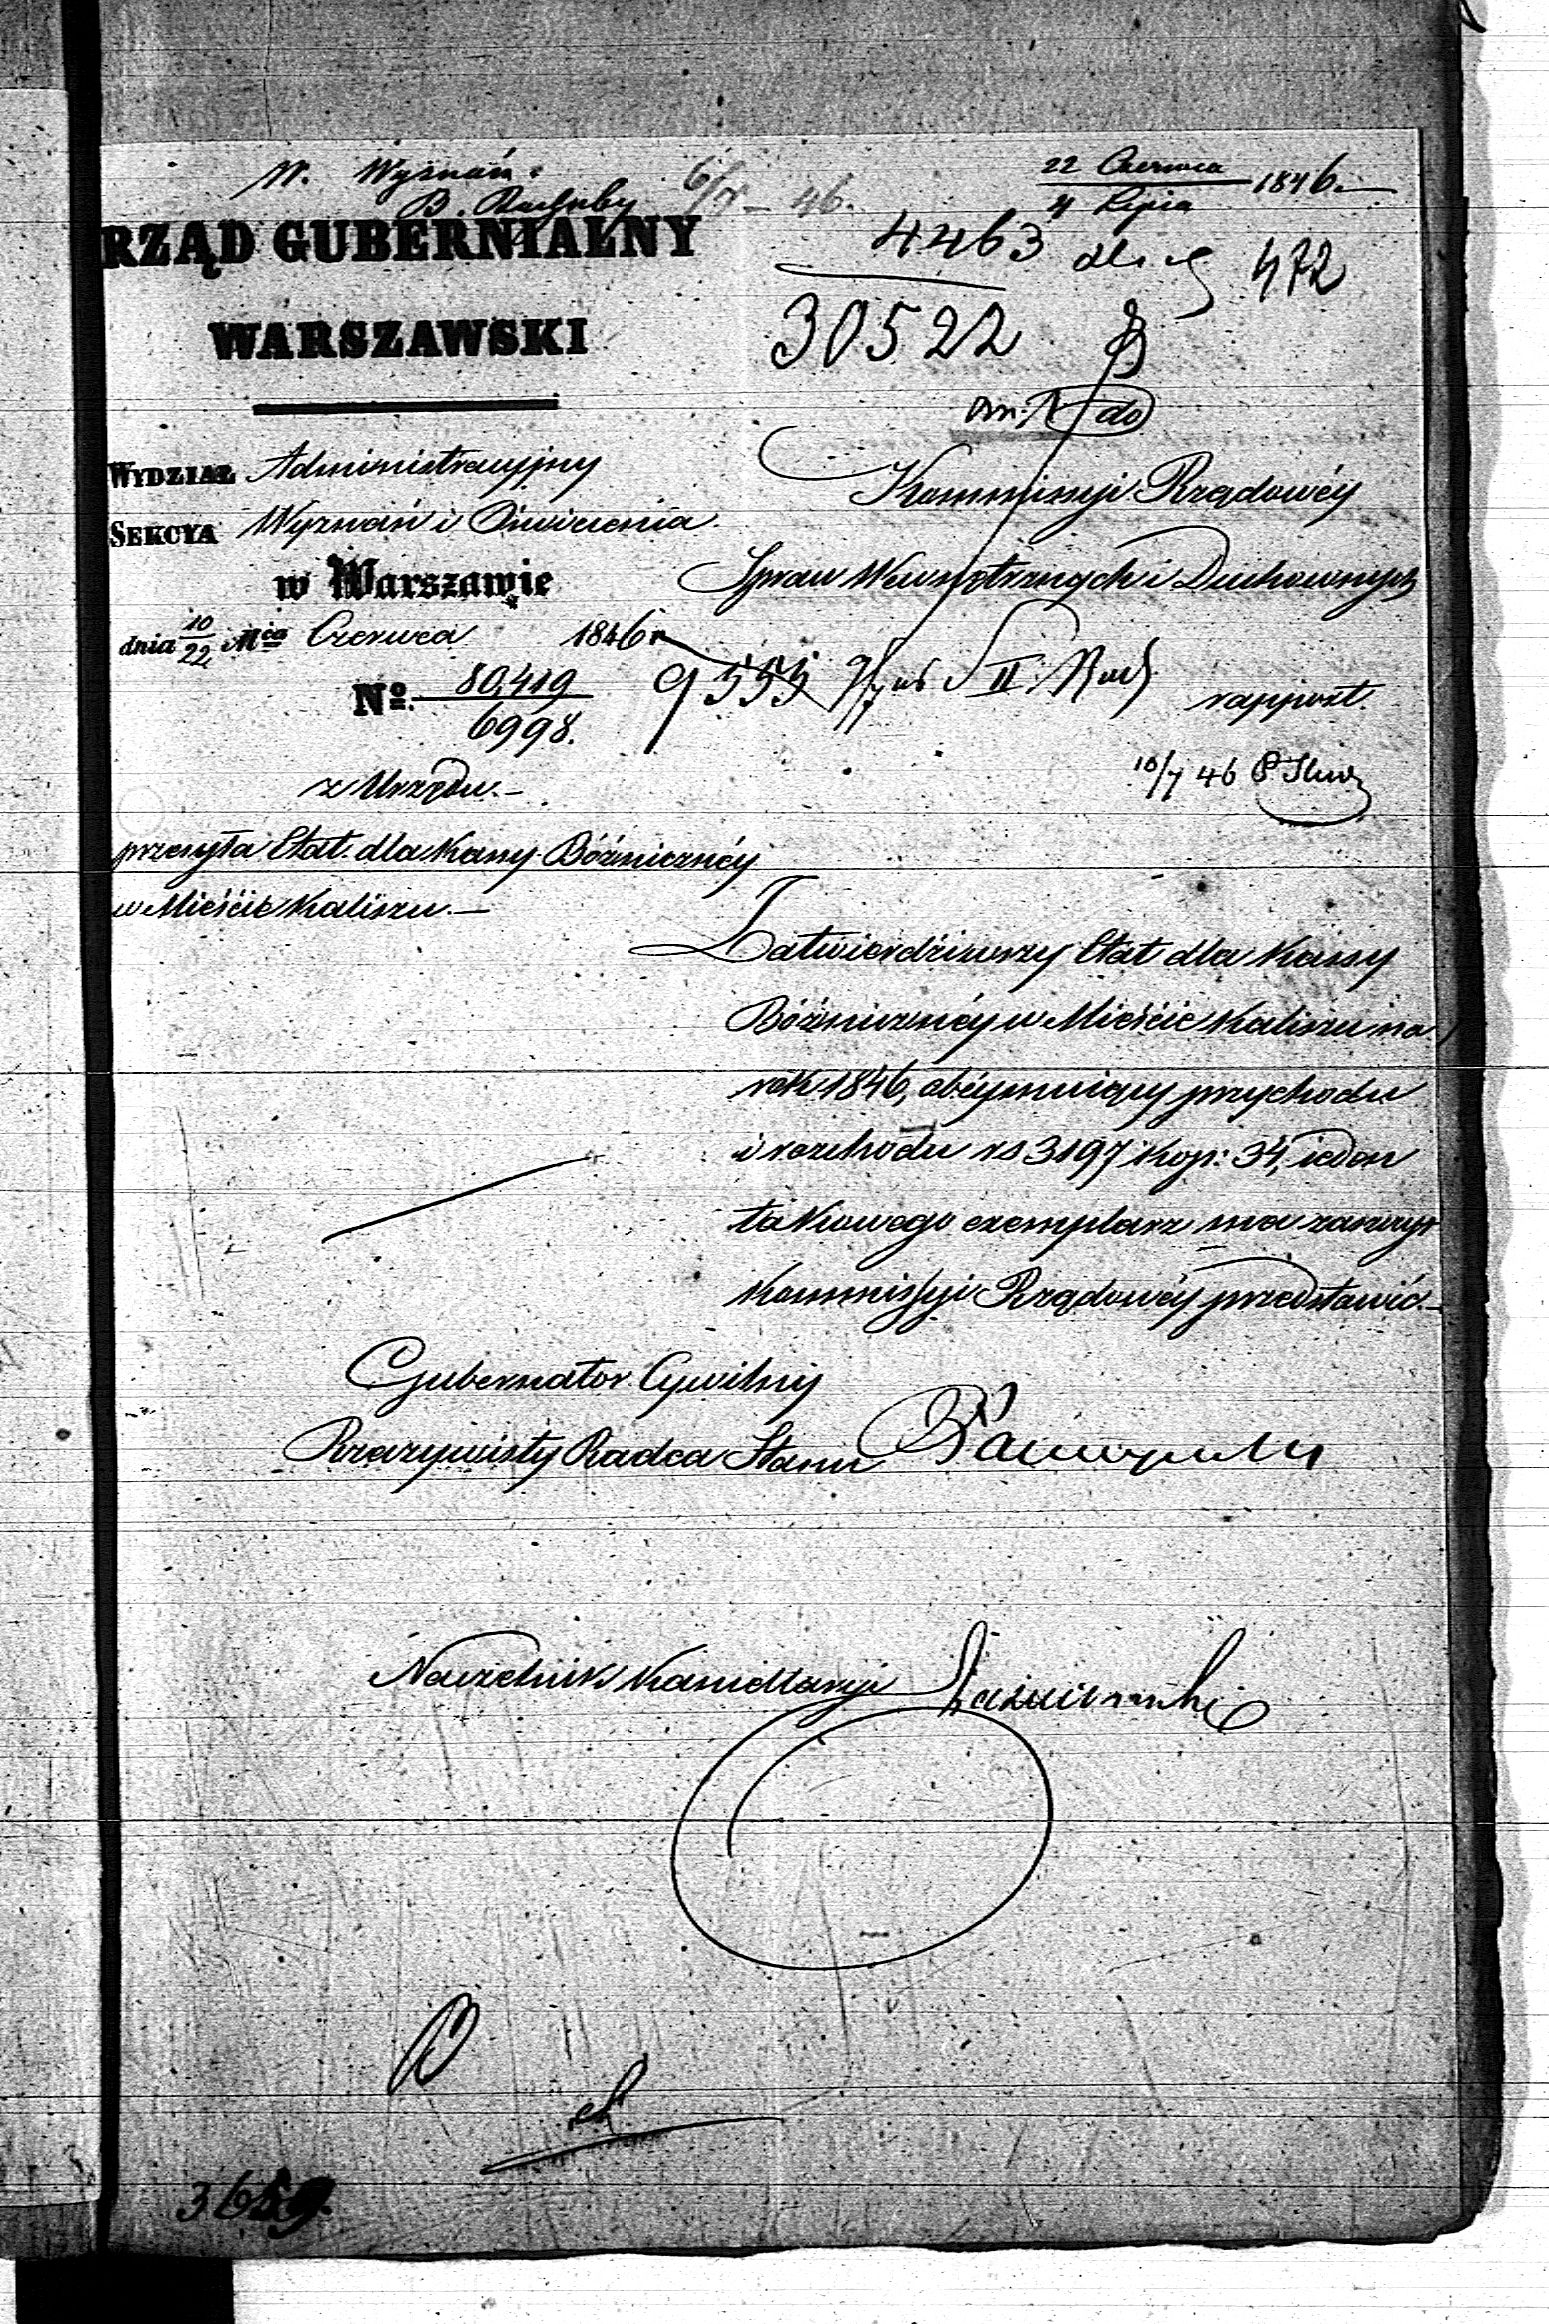 W. Wyznań.
B. Rachuby 6/7 – 46.
22 Czerwca
4 Lipca 1846.
RZĄD GUBERNIALNY
4463 472
WARSZAWSKI
30522
do
WYDZIAŁ Administracyjny
Kommissyi Rządowéy
SEKCYA Wyznań i Oświecenia.
Spraw Wewnętrznych i Duchownych
w Warszawie
dnia 10/22 Mca Czerwca 1846 r
No. 80,419
6998.
9555 9/7 46 S II Rach
rapport.
z Urzędu.–
10/7 46
przesyła Etat dla Kassy Bóżniczéy
w Mieście Kaliszu.–
Zatwierdziwszy Etat dla Kassy
Bóżniczéy w Mieście Kaliszu na
rok 1846, obeymuiący przychodu
i rozchodu rs 3197 kop: 34, ieden
takowego exemplarz ma zaszczyt
Kommissyi Rządowéy przedstawić.–
Gubernator Cywilny
Rzeczywisty Radca Stanu
Naczelnik Kancellaryi
3659.